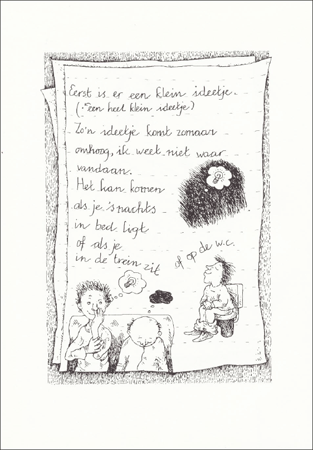 Eerst is er een klein ideetje.
(Een heel klein ideetje)
Zo'n ideetje komt zomaar
omhoog, ik weet niet waar
vandaan.
Het kan komen
als je 's nachts
in bed ligt
of als je
in de trein zit
of op de w.c.